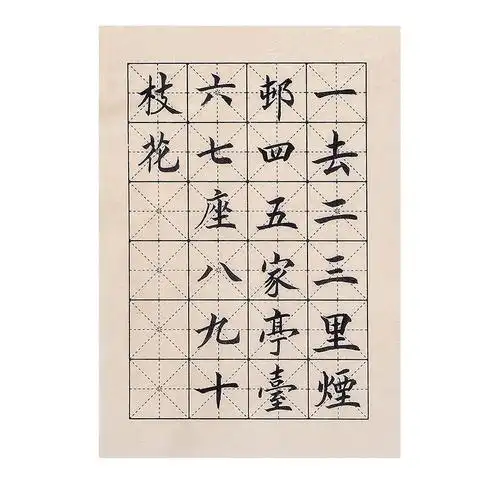 一去二三里煙
邨四五家亭臺
六七座八九十
枝花